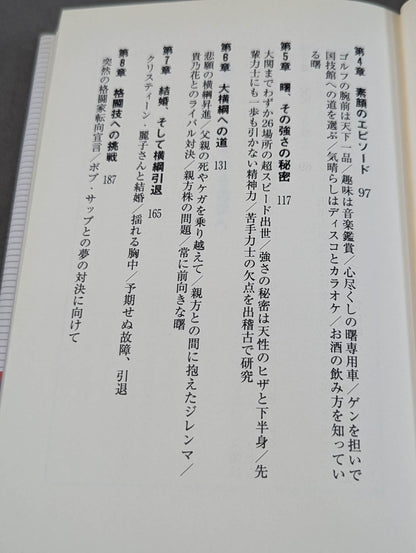 第4章 素顔のエピソード 97
ゴルフの腕前は天下一品/趣味は音楽鑑賞/心尽くしの曙専用車/ゲンを担いで
国技館への道を選ぶ/気晴らしはディスコとカラオケ/お酒の飲み方を知ってい
る曙
第5章 曙、その強さの秘密 117
大関までわずか26場所の超スピード出世/強さの秘密は天性のヒザと下半身/先
輩力士にも一歩も引かない精神力/苦手力士の欠点を出稽古で研究
第6章 大横綱への道 131
悲願の横綱昇進/父親の死やケガを乗り越えて/親方との間に抱えたジレンマ/
貴乃花とのライバル対決/親方株の問題/常に前向きな曙
第7章 結婚、そして横綱引退 165
クリスティーン・麗子さんと結婚/揺れる胸中/予期せぬ故障、引退
第8章 格闘技への挑戦 187
突然の格闘家転向宣言/ボブ・サップとの夢の対決に向けて